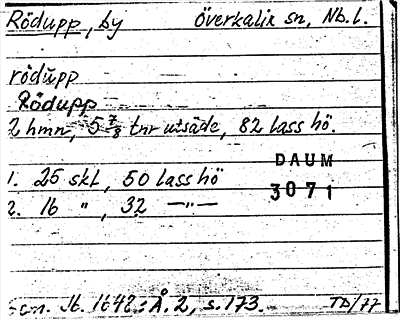 Rödupp, by Överkalix sn, Nb. l.
rödupp
Rödupp
2 hmn, 5 7/8 tnr utsäde, 82 lass hö.
DAUM
1. 25 skl, 50 lass hö
3071
2. 16 " , 32 —"—
Jb. 1642: Å. 2, s. 173. TD/77